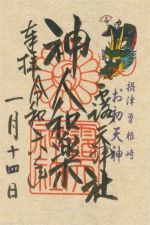 摂津 曽根崎
お初天神
露天神社
神人和楽
奉拝
令和六年
一月十四日